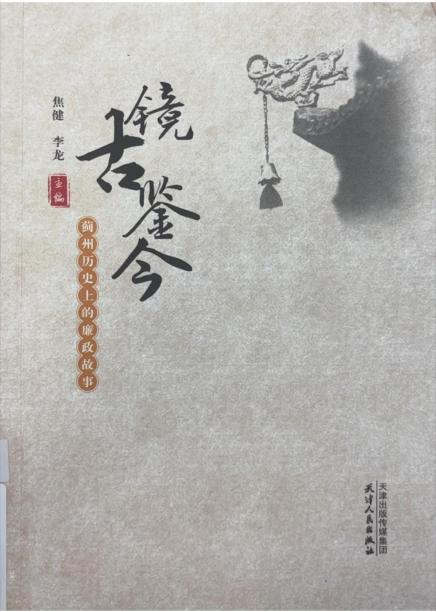 镜古鉴今
蓟州历史上的廉政故事
焦健 李龙
主编
天津出版传媒集团
天津人民出版社